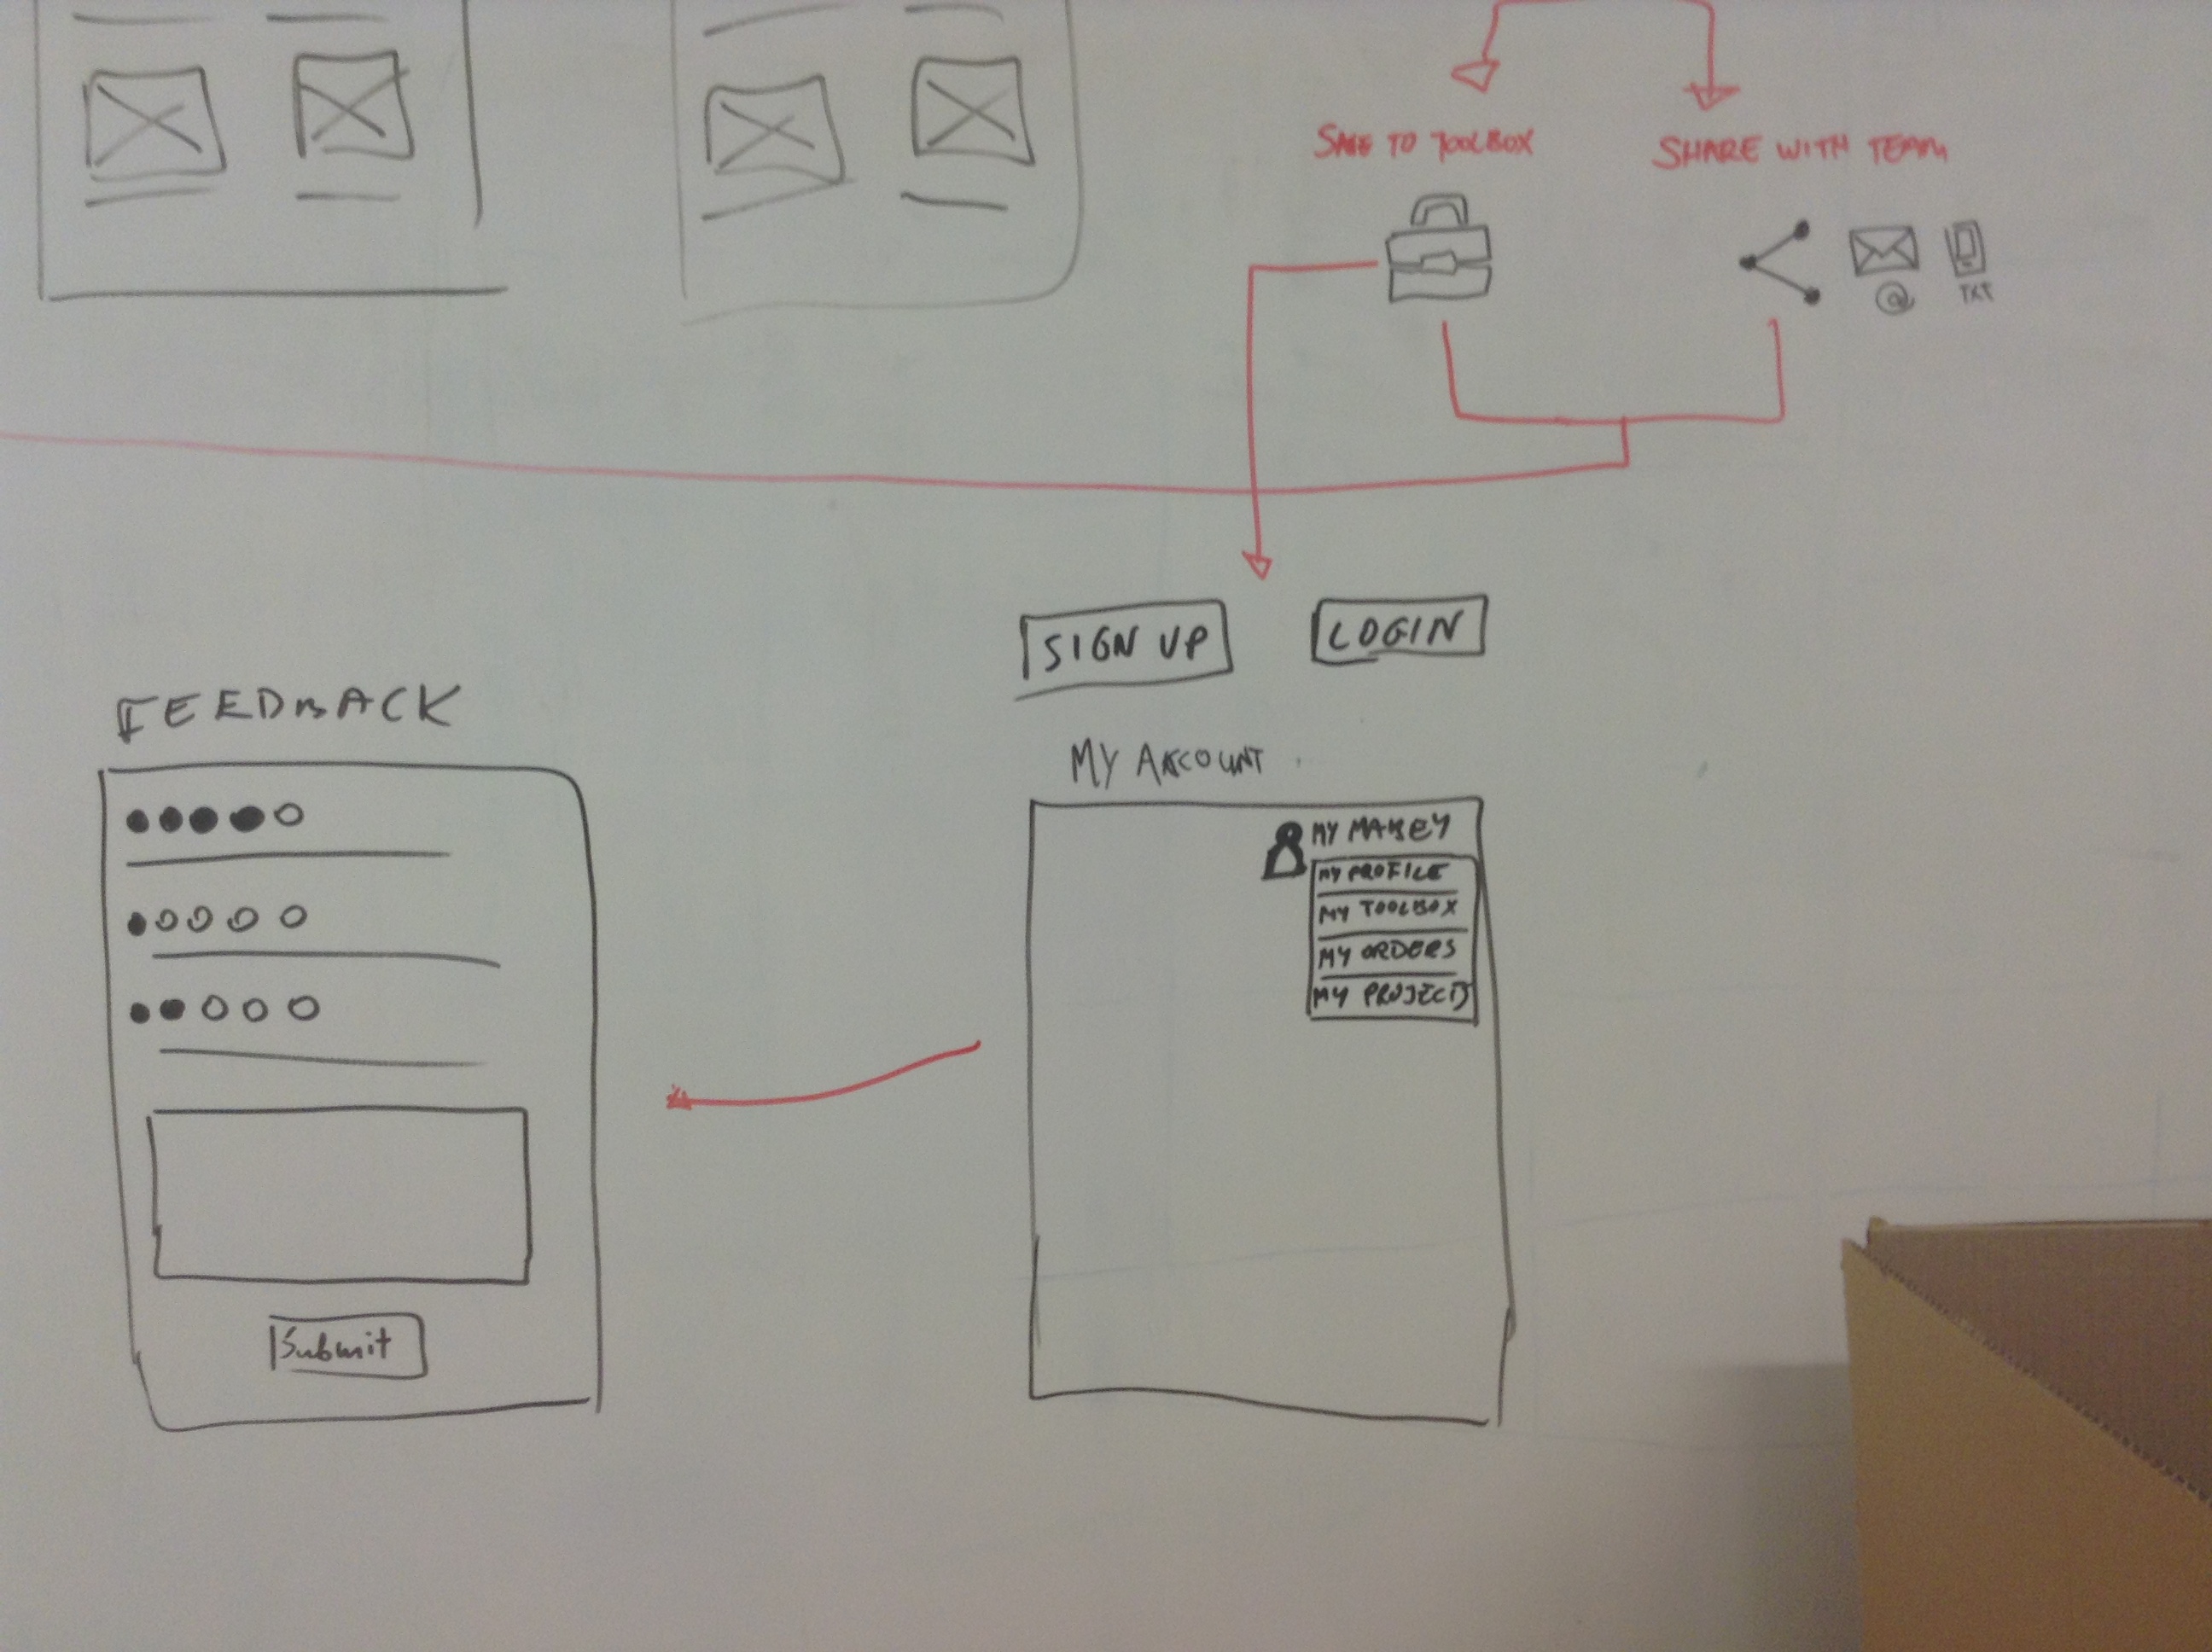 SAVE TO TOOLBOX
SHARE WITH TEAM
@
TXT
SIGN UP
LOGIN
FEEDBACK
MY ACCOUNT
MY MABEY
MY PROFILE
MY TOOLBOX
MY ORDERS
MY PROJECTS
Submit